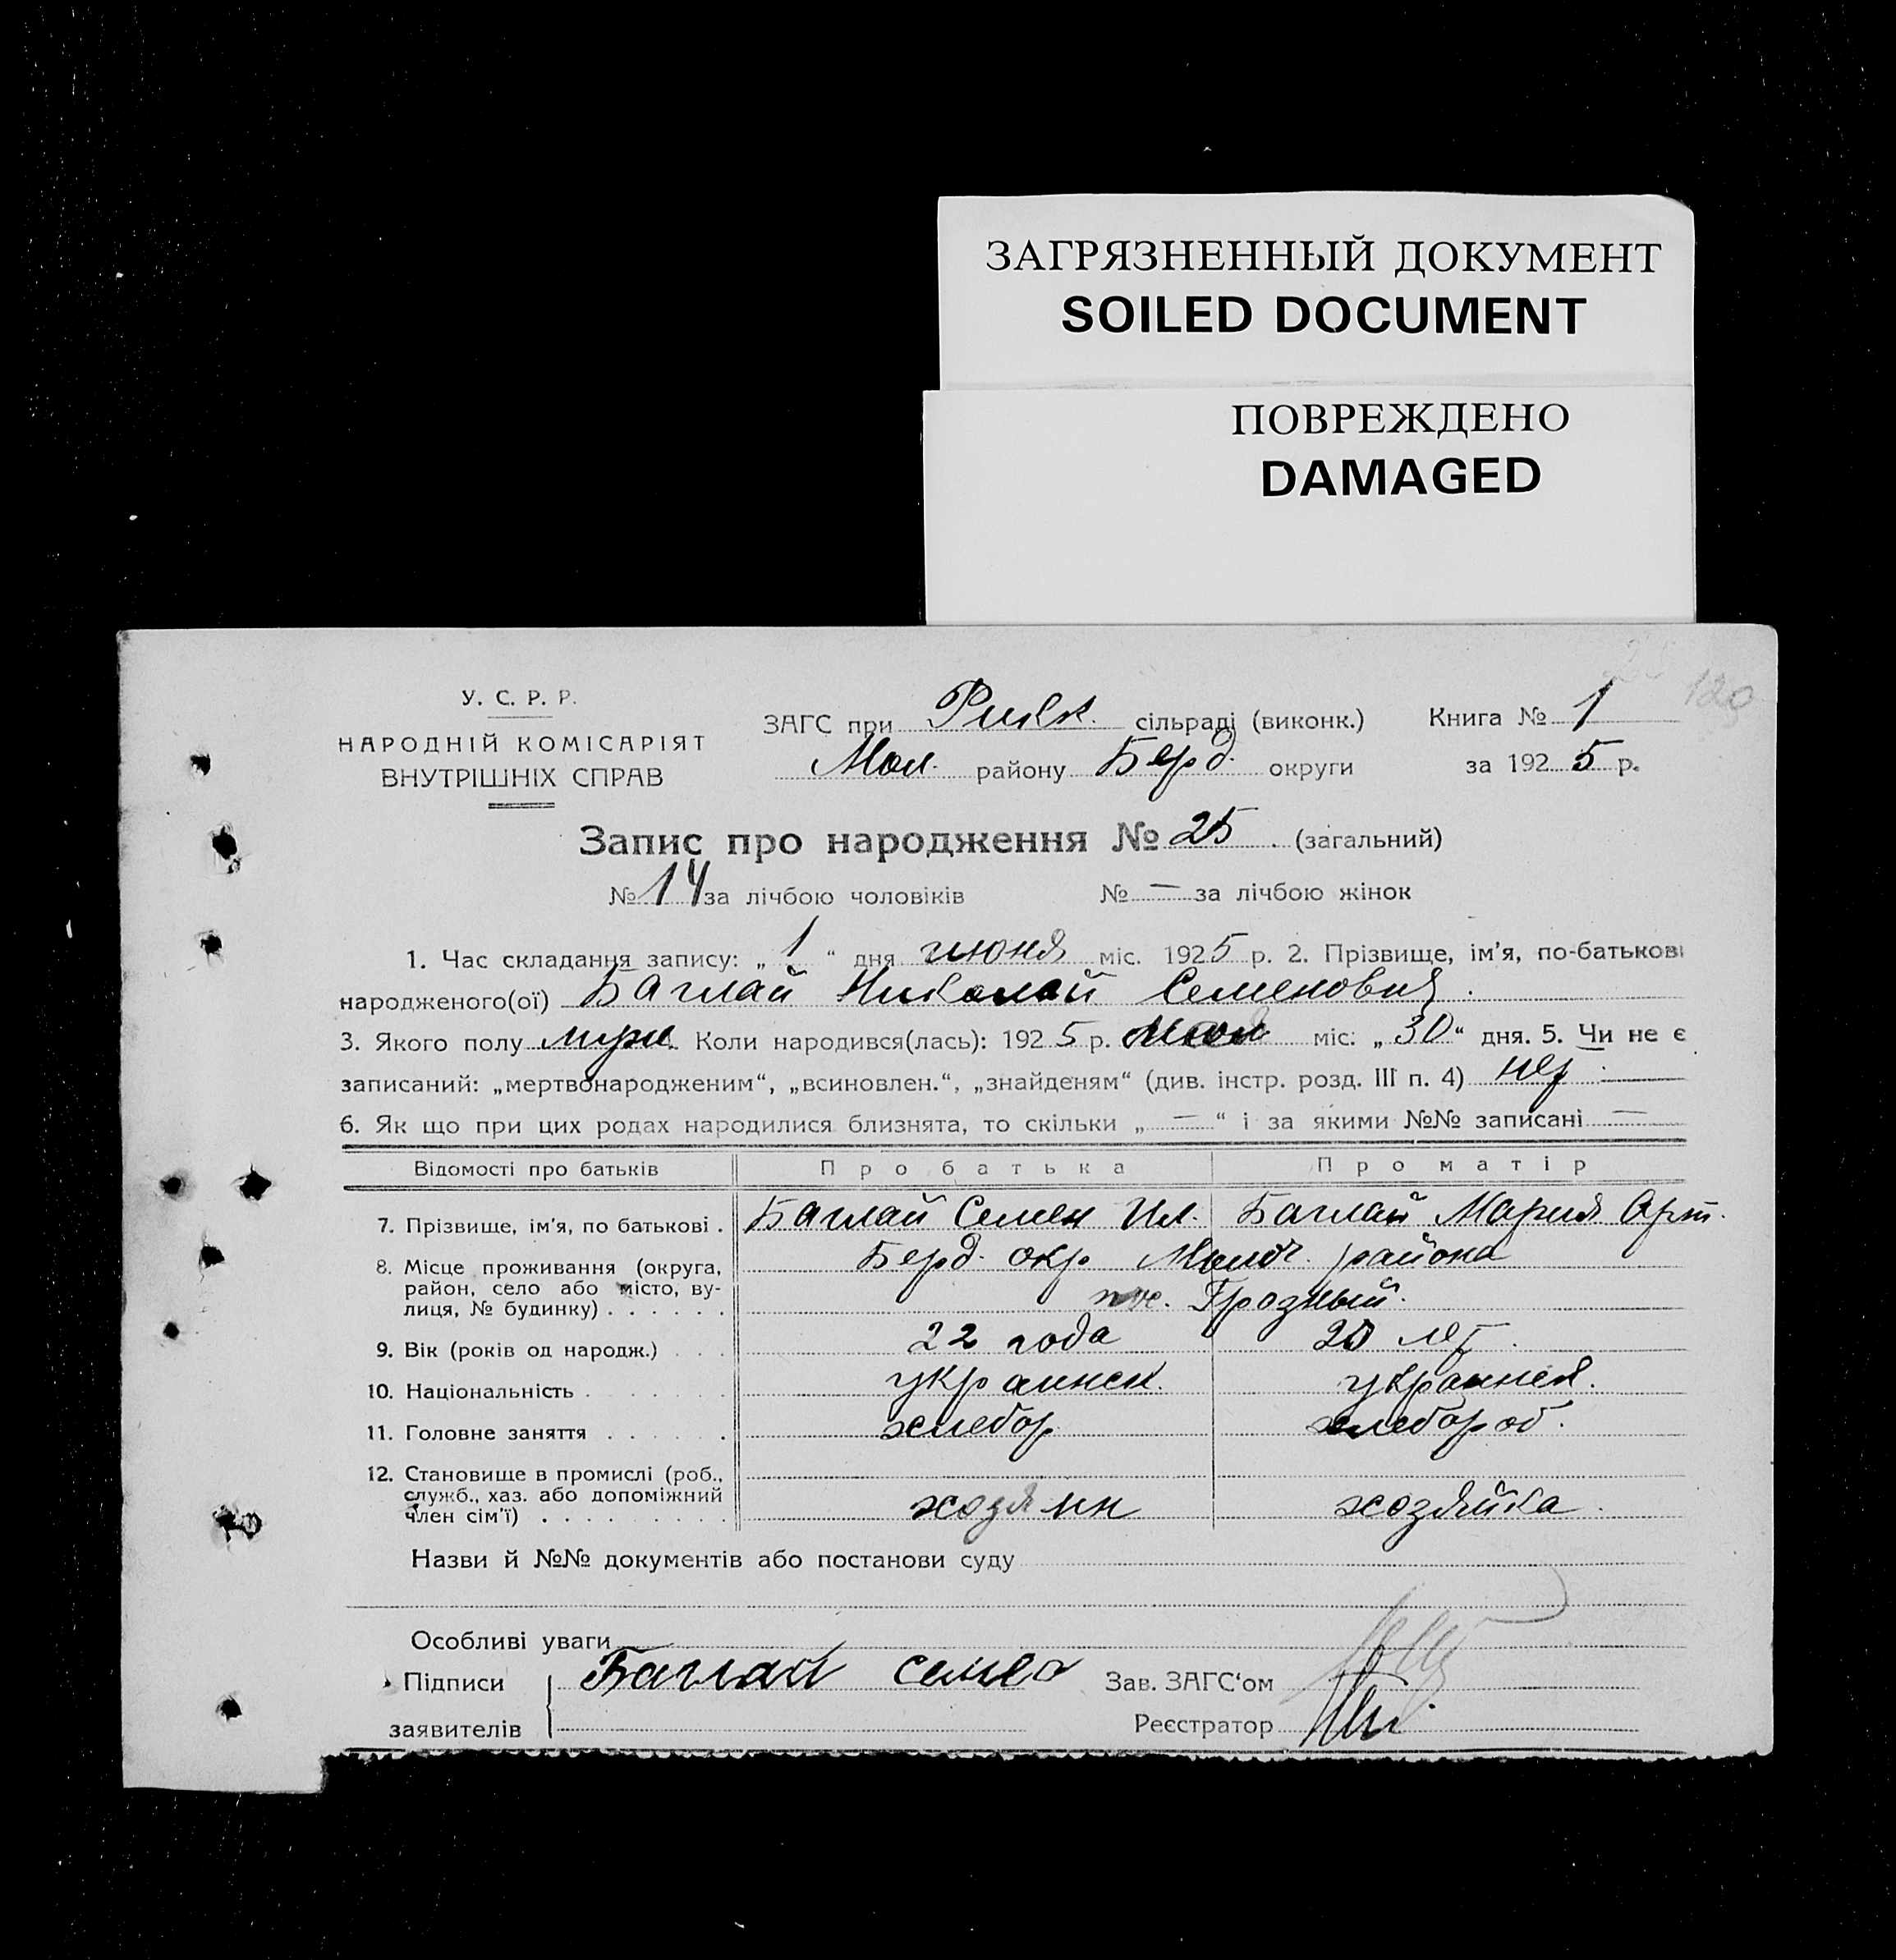 ЗАГРЯЗНЕННЫЙ ДОКУМЕНТ
SOILED DOCUMENT
ПОВРЕЖДЕНО
DAMAGED
120
У. С. Р. Р.
НАРОДНІЙ КОМІСАРІЯТ
ВНУТРІШНІХ СПРАВ
ЗАГС при сільраді (виконк.) Книга № 1
Мол. району Берд. округи за 1925 р.
Запис про народження № 25 . (загальний)
№ 14 за лічбою чоловіків № — за лічбою жінок
1. Час складання запису: „ 1 “ дня июня міс. 1925 р. 2. Прізвище, ім’я, по-батькові
народженого(ої) Баглай Николай Семенович .
3. Якого полу муж. Коли народився(лась): 1925 р. мая міс. „ 30 “ дня. 5. Чи не є
записаний: „мертвонародженим“, „всиновлен.“, „знайденям“ (див. інстр. розд. III п. 4) нет
6. Як що при цих родах народилися близнята, то скільки „ — “ і за якими №№ записані —
Відомості про батьків Про батька Про матір
7. Прізвище, ім’я, по батькові . Баглай Семен Ил. Баглай Мария Арт.
8. Місце проживання (округа, Берд. окр. Молоч. района
район, село або місто, ву-
лиця, № будинку) . . . . . . пос. Грозный.
9. Вік (років од народж.) . . . 22 года 20 лет .
10. Національність . . . . . . . украинск. украинск.
11. Головне заняття . . . . . . хлебор. хлебороб.
12. Становище в промислі (роб.,
служб., хаз. або допоміжний
член сім’ї) . . . . . . . . . хозяин хозяйка .
Назви й №№ документів або постанови суду
Особливі уваги
Підписи Баглай Зав. ЗАГС‘ом
заявителів Реєстратор